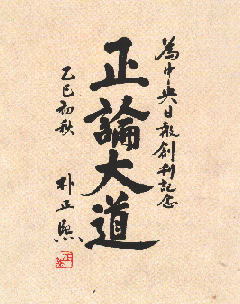 為中央日報創刊記念
正論大道
乙巳初秋
朴正熙